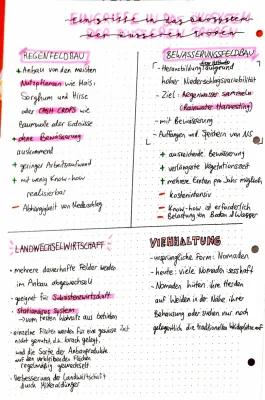 EINGRIFFE IN DAS ÖKOSYSTEM
DER ÄUSSEREN TROPEN
REGENFELDBAU
+ Anbau von den meisten
Nutzpflanzen wie Mais,
Sorghum und Hirse
oder CASH CROPS wie
Baumwolle oder Erdnüsse
+ ohne Bewässerung
auskommend
+ geringer Arbeitsaufwand
+ mit wenig Know-how
realisierbar
- Abhängigkeit von Niederschlag
BEWÄSSERUNGSFELDBAU
- Herausbildung aufgrund
hoher Niederschlagsvariabilität
- Ziel: Regenwasser sammeln
(Rainwater Harvesting)
- mit Bewässerung
- Auffangen und Speichern von NS
+ ausreichende Bewässerung
+ verlängerte Vegetationszeit
+ mehrere Ernten pro Jahr möglich
- kostenintensiv
- Know-how ist erforderlich
- Belastung von Boden & Wasser
LANDWECHSELWIRTSCHAFT
• mehrere dauerhafte Felder werden
im Anbau abgewechselt
• geeignet für Subsistenzwirtschaft
• Stationäres System
→ vom festen Wohnsitz aus betrieben
• einzelne Flächen werden für eine gewisse Zeit
nicht genutzt, d.h. brach gelegt,
und die Sorte der Anbauprodukte
auf den verbleibenden Flächen
regelmäßig gewechselt
• Verbesserung der Landwirtschaft
durch Mineraldünger
VIEHHALTUNG
- ursprüngliche Form: Nomaden
- heute: viele Nomaden sesshaft
- Nomaden hüten ihre Herden
auf Weiden in der Nähe ihrer
Behausung oder ziehen nur noch
gelegentlich die traditionellen Weideplätze auf